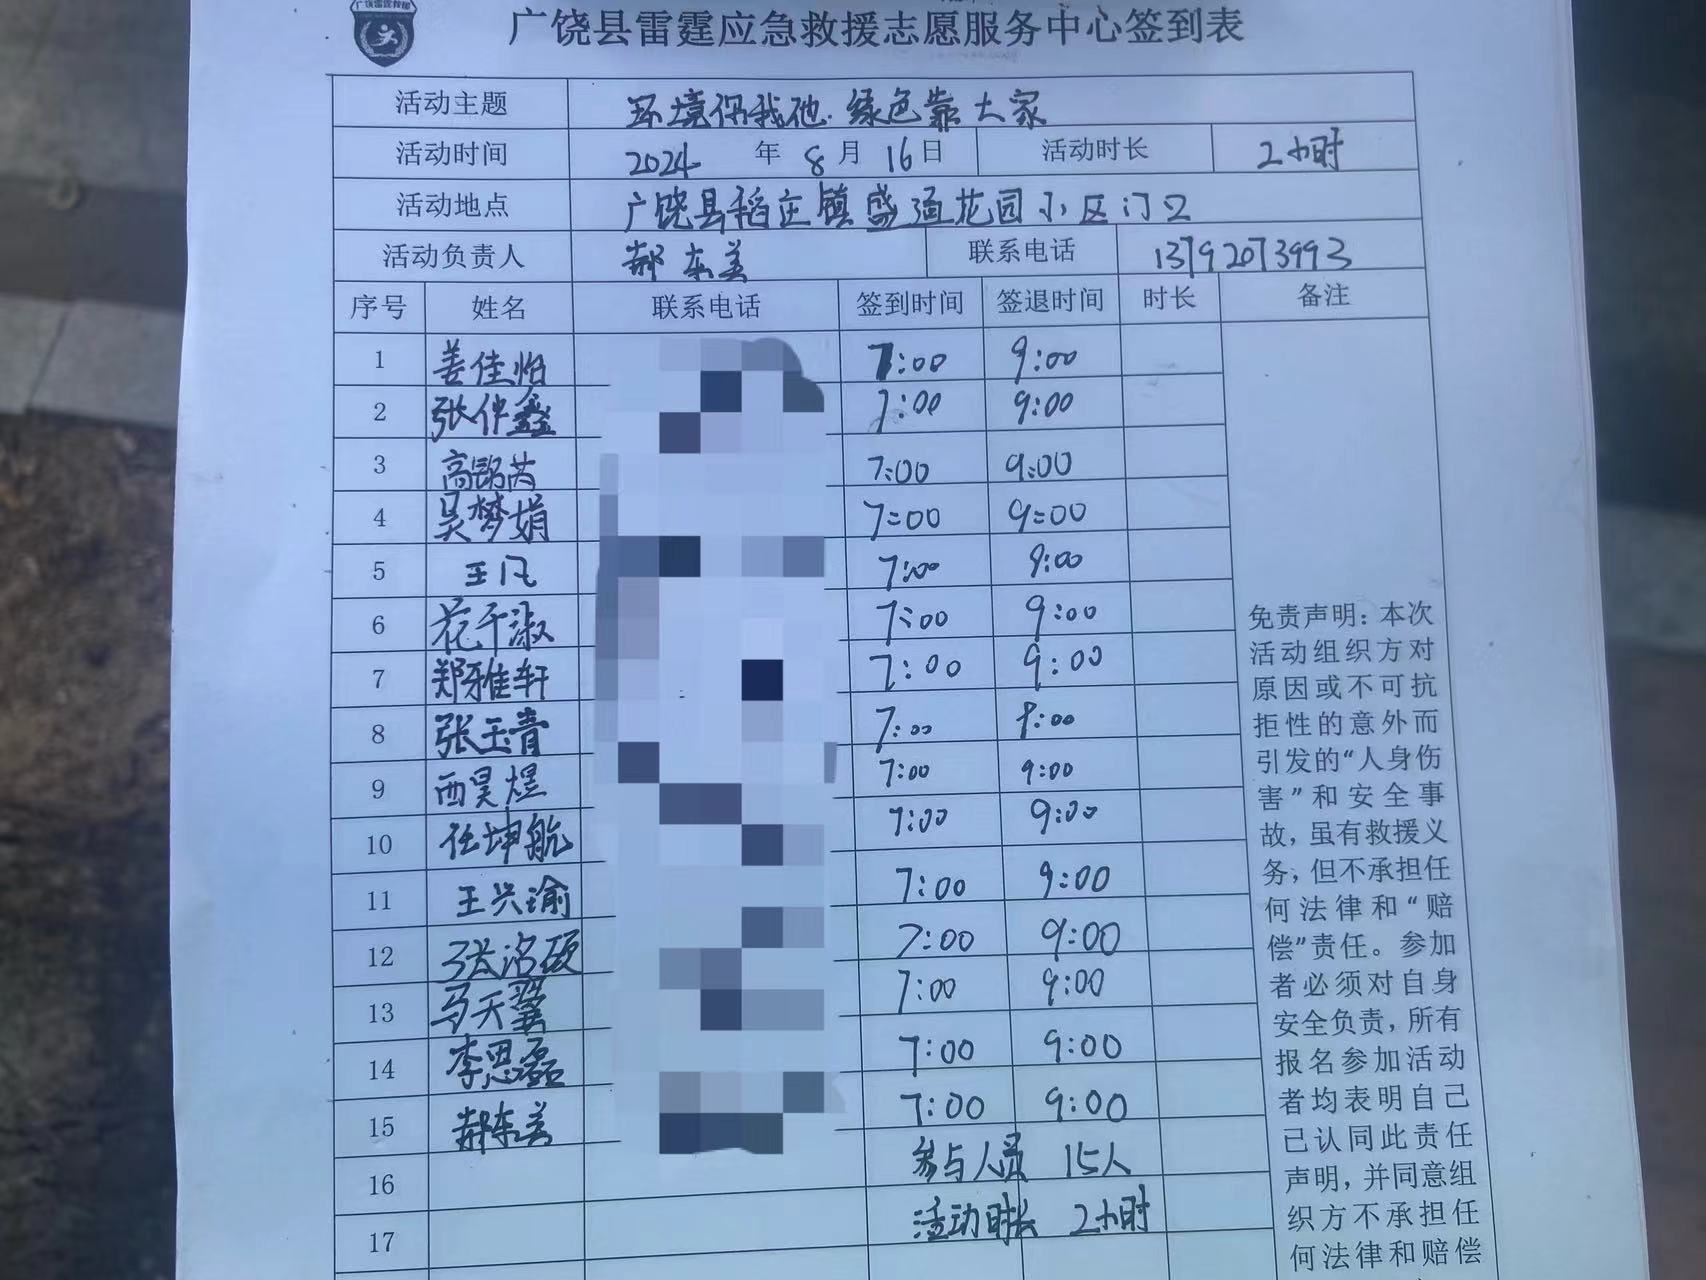 广饶雷霆救援
广饶县雷霆应急救援志愿服务中心签到表
活动主题 环境你我他.绿色靠大家
活动时间 2024 年 8 月 16 日 活动时长 2小时
活动地点 广饶县稻庄镇盛通花园小区门口
活动负责人 郝东美 联系电话 13792073993
序号 姓名 联系电话 签到时间 签退时间 时长 备注
1 姜佳怡 7:00 9:00
2 张伊鑫 7:00 9:00
3 高铭芮 7:00 9:00
4 吴梦娟 7:00 9:00
5 王凡 7:00 9:00
6 花千淑 7:00 9:00
7 郑雅轩 7:00 9:00
8 张玉青 7:00 9:00
9 西昊煜 7:00 9:00
10 任坤航 7:00 9:00
11 王兴瑜 7:00 9:00
12 张洺硕 7:00 9:00
13 马天翼 7:00 9:00
14 李思磊 7:00 9:00
15 郝东美 7:00 9:00
16 参与人员 15人
17 活动时长 2小时
免责声明：本次
活动组织方对
原因或不可抗
拒性的意外而
引发的“人身伤
害”和安全事
故，虽有救援义
务；但不承担任
何法律和“赔
偿”责任。参加
者必须对自身
安全负责，所有
报名参加活动
者均表明自己
已认同此责任
声明，并同意组
织方不承担任
何法律和赔偿